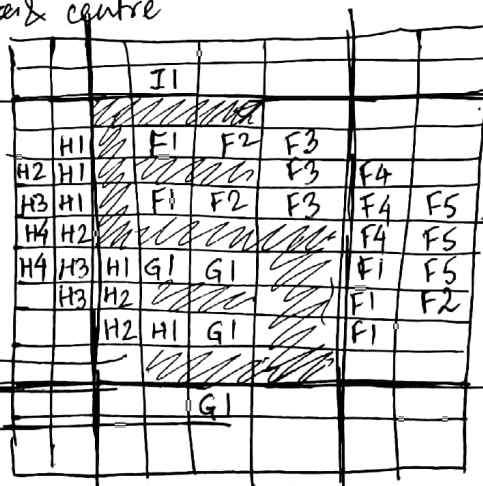 & centre
I1
H1 F1 F2 F3
H2 H1 F3 F4
H3 H1 F1 F2 F3 F4 F5
H4 H2 F4 F5
H4 H3 H1 G1 G1 F1 F5
H3 H2 F1 F2
H2 H1 G1 F1
G1